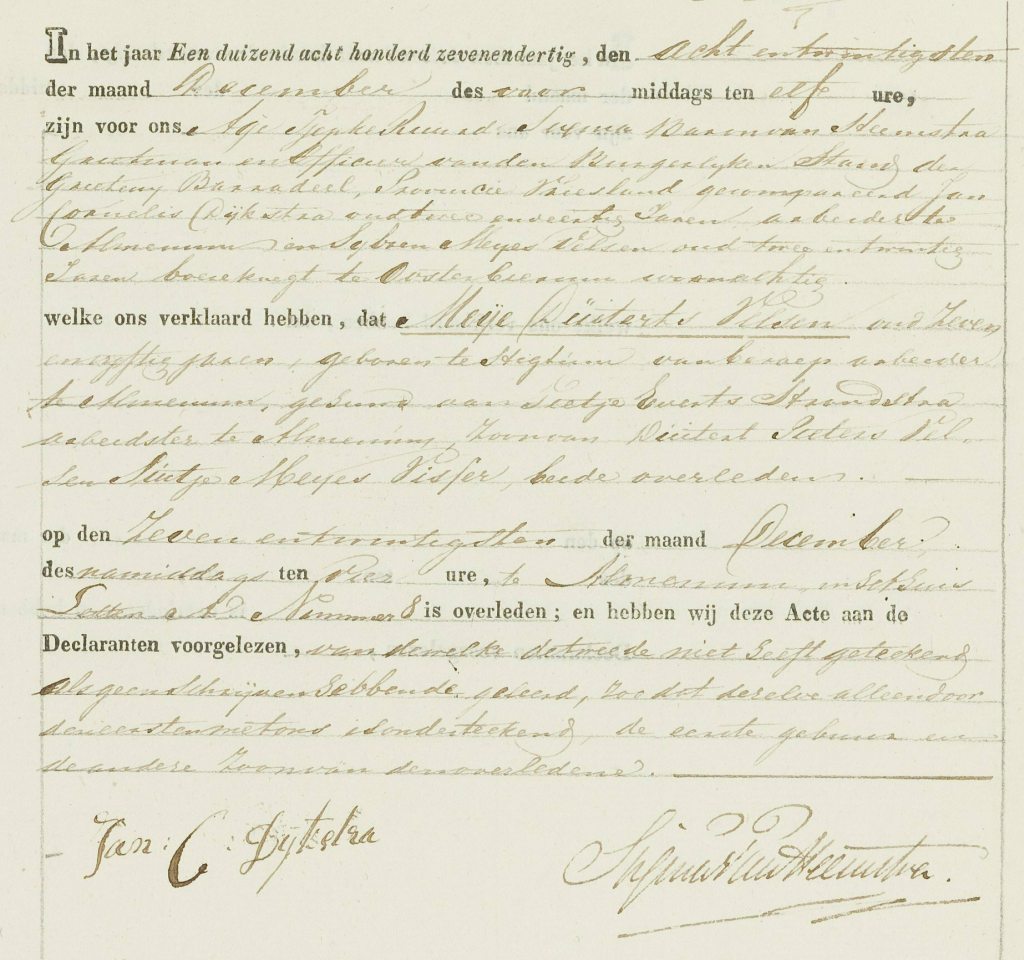 In het jaar Een duizend acht honderd zevenendertig, den acht entwintigsten
der maand December des voor middags ten elf ure,
zijn voor ons Age Tjepke Ruurd Sirma Baron van Heemstra
Grietman en Officier vanden Burgerlyken Stand der
Grieteny Barradeel, Provincie Vriesland gecompareerd Jan
Cornelis Dijkstra oud twee enveertig Jaren arbeider te
Almenum en Sybren Meyes Velsen oud twee entwintig
Jaren boereknegt te Oosterbierum woonachtig.
welke ons verklaard hebben, dat Meije Düiterts Velsen oud Zeven
envyftig jaren, geboren te van beroep arbeider
te Almenum, gehuwd aan Everts Strandstra
arbeidster te Almenum, Zoon van Düitert Pieters Vel-
sen Meyes Visser, beide overleden.
op den Zeven entwintigsten der maand December,
des namiddags ten vier ure, te Almenum, in het huis
Letter A Nummer 8 is overleden; en hebben wij deze Acte aan de
Declaranten voorgelezen, van dewelke de tweede niet heeft geteekend
als geen schrijven hebbende geleerd, zoo dat dezelve alleen door
den eersten met ons is onderteekend, de eerste gebuur en
de andere Zoon van den overledene.
Jan: C: Dijkstra
van Heemstra.